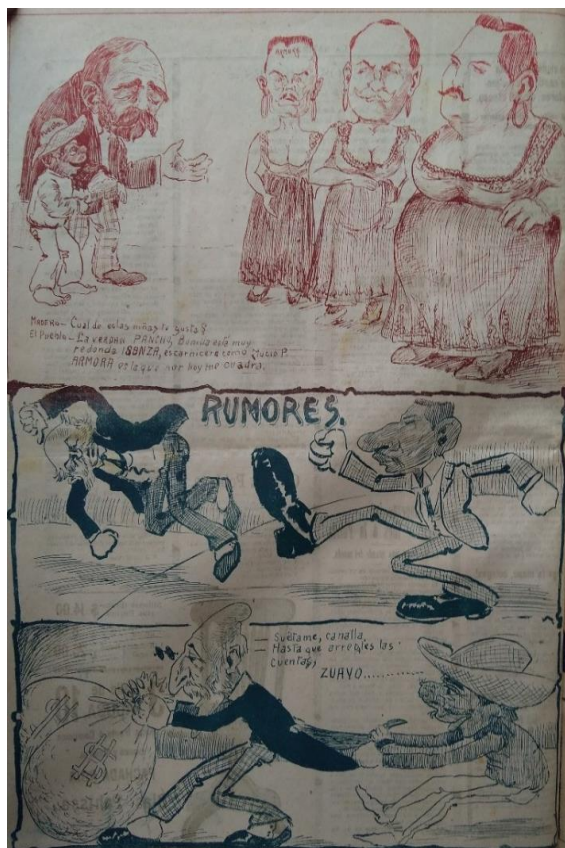 PUEBLO
ARMORA
MADERO— Cual de estas niñas te gusta?
El Pueblo— La verdad PANCHO, está muy
redonda, es carnicera como Mucio P.
ARMORA es la que por hoy me cuadra.
RUMORES.
— Suéltame, canalla.
— Hasta que arregles las
cuentas,
ZUAVO..............
$